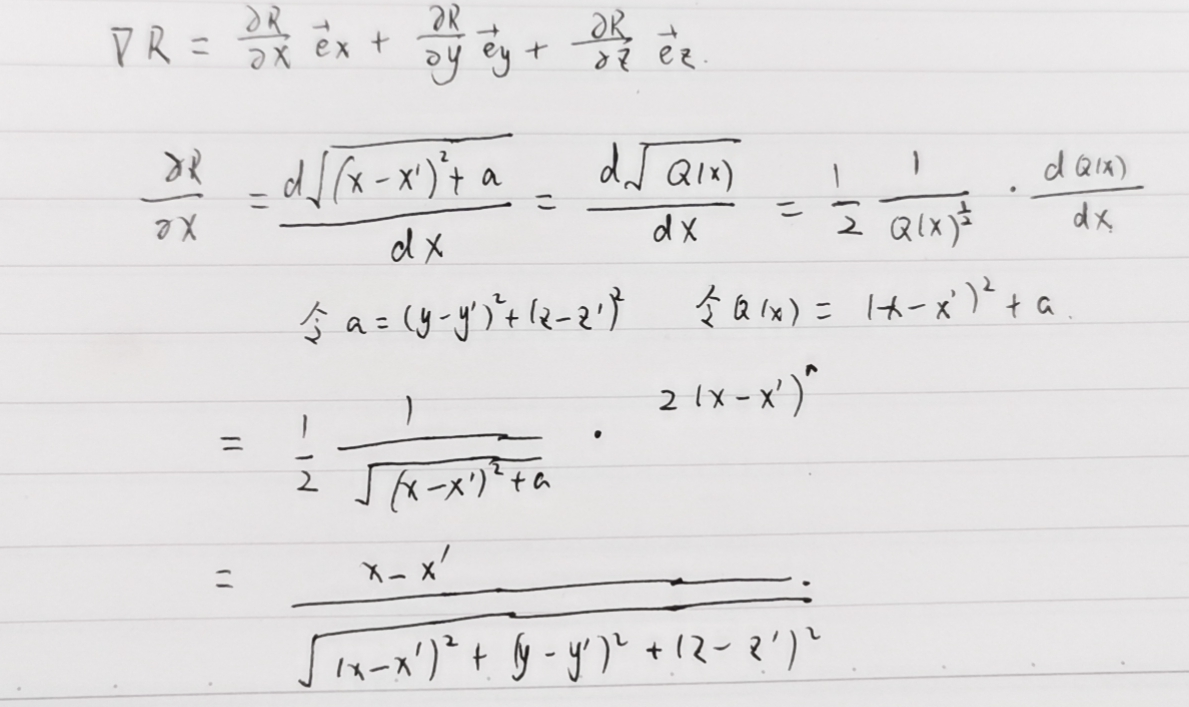 ∇R = ∂R/∂x e⃗x + ∂R/∂y e⃗y + ∂R/∂z e⃗z.
∂R/∂x = d√((x-x')²+a)/dx = d√(Q(x))/dx = 1/2 1/Q(x)^(1/2) · dQ(x)/dx
令 a = (y-y')²+(z-z')² 令 Q(x) = (x-x')²+a.
= 1/2 1/√((x-x')²+a) · 2(x-x')
= x-x'/√((x-x')²+(y-y')²+(z-z')²).